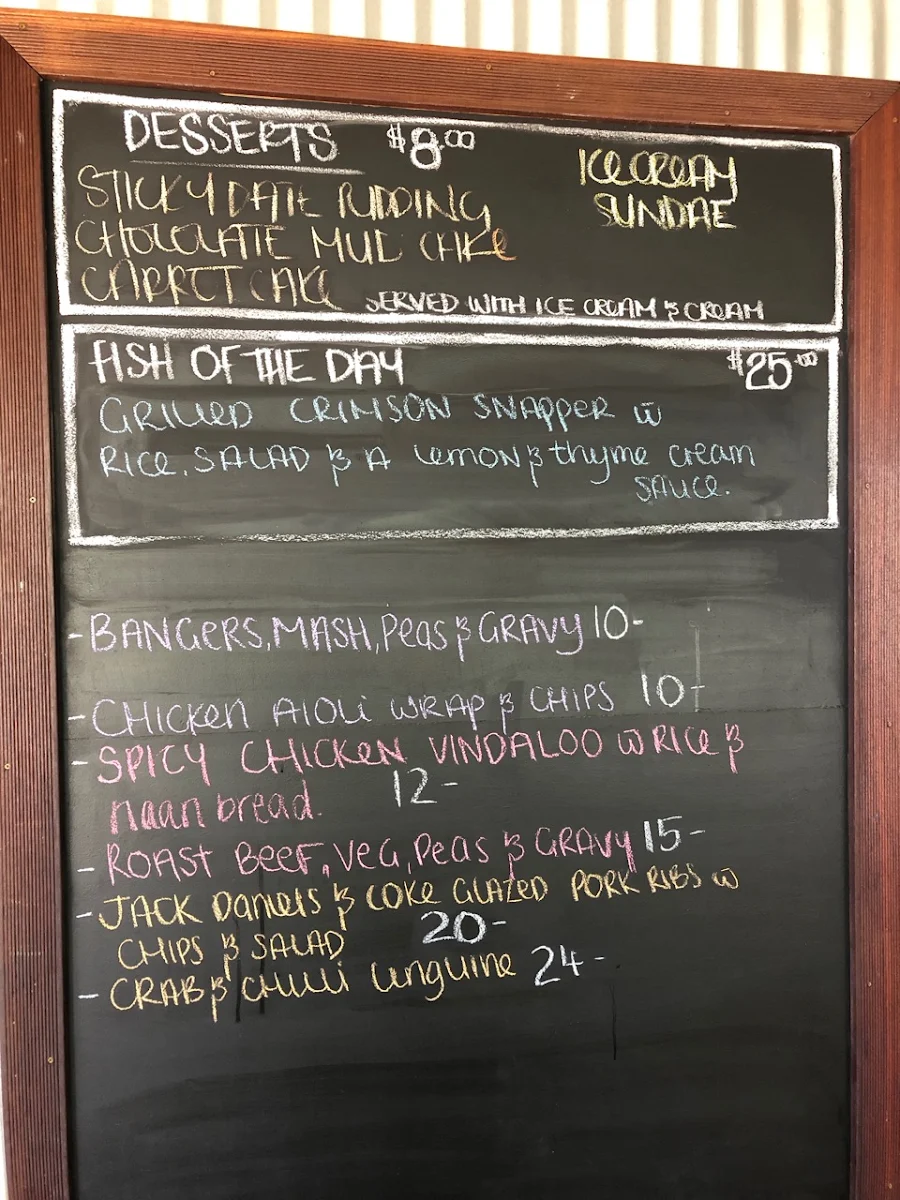 DESSERTS $8.00
STICKY DATE PUDDING
CHOCOLATE MUD CAKE
CARROT CAKE
ICECREAM
SUNDAE
SERVED WITH ICE CREAM & CREAM
FISH OF THE DAY $25.00
GRILLED CRIMSON SNAPPER w
RICE, SALAD & A LEMON & thyme cream
SAUCE.
- BANGERS, MASH, Peas & GRAVY 10-
- CHICKEN AIOLi WRAP & CHIPS 10-
- SPICY CHICKEN VINDALOO w RICE &
naan bread. 12-
- ROAST BEEF, VEG, Peas & GRAVY 15-
- JACK Daniels & COKE GLAZED PORK RIBS w
CHIPS & SALAD 20-
- CRAB & CHILLI Linguine 24-